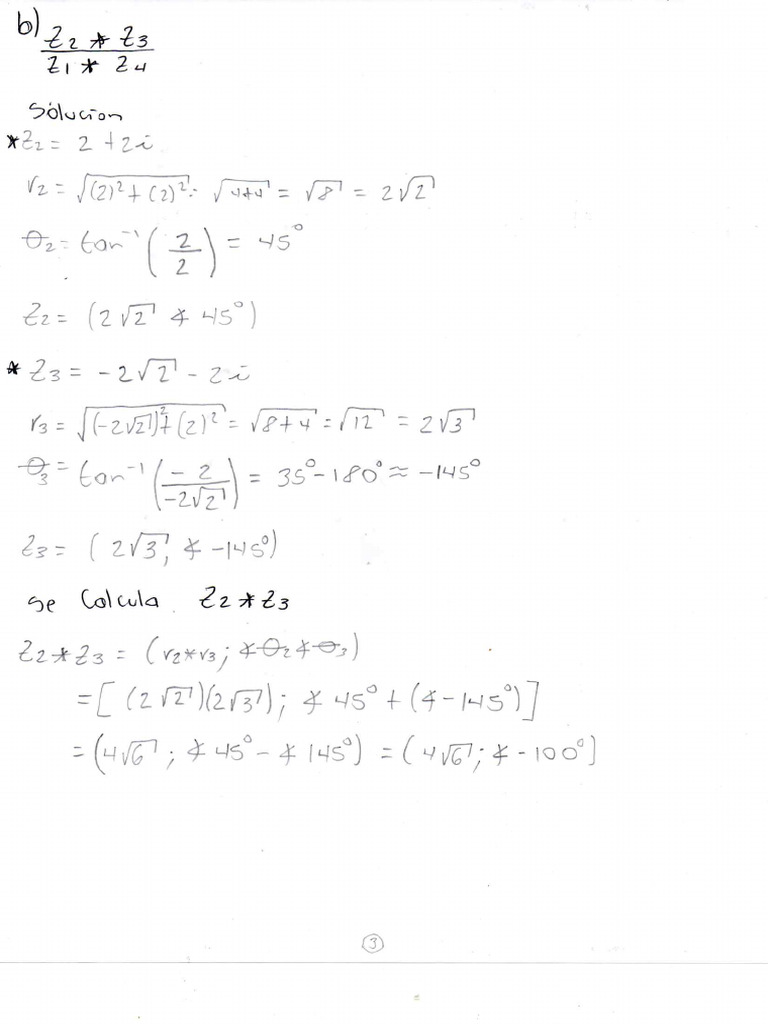 b) Z2 * Z3 / Z1 * Z4
Solucion
* Z2 = 2 + 2i
r2 = √((2)² + (2)²) = √(4+4) = √8 = 2√2
θ2 = tan⁻¹(2/2) = 45°
Z2 = (2√2 ∡ 45°)
* Z3 = -2√2 - 2i
r3 = √((-2√2)² + (2)²) = √(8+4) = √12 = 2√3
θ3 = tan⁻¹(-2/-2√2) = 35° - 180° ≈ -145°
Z3 = (2√3; ∡ -145°)
se Calcula Z2 * Z3
Z2 * Z3 = (r2 * r3; ∡θ2 ∡θ3)
= [(2√2)(2√3); ∡ 45° + (∡ -145°)]
= (4√6; ∡ 45° - ∡ 145°) = (4√6; ∡ -100°]
3